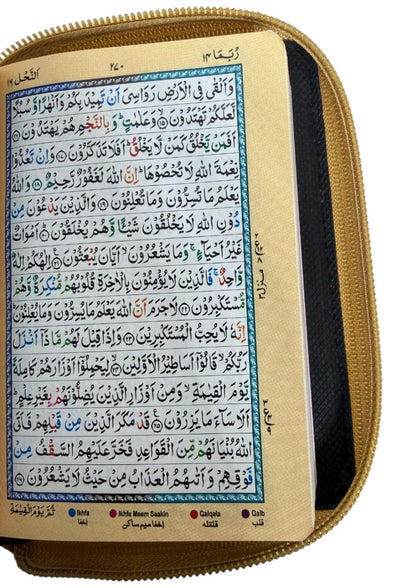 رُبَمَا ۱۴
۲۷۰
اَلنَّحْل ۱۶
وَاَلْقٰى فِى الْاَرْضِ رَوَاسِىَ اَنْ تَمِيْدَ بِكُمْ وَاَنْهٰرًا وَّسُبُلًا
لَّعَلَّكُمْ تَهْتَدُوْنَ ۙ﴿۱۵﴾ وَعَلٰمٰتٍ ؕ وَبِالنَّجْمِ هُمْ يَهْتَدُوْنَ ﴿۱۶﴾
اَفَمَنْ يَّخْلُقُ كَمَنْ لَّا يَخْلُقُ ؕ اَفَلَا تَذَكَّرُوْنَ ﴿۱۷﴾ وَاِنْ تَعُدُّوْا
نِعْمَةَ اللّٰهِ لَا تُحْصُوْهَا ؕ اِنَّ اللّٰهَ لَغَفُوْرٌ رَّحِيْمٌ ﴿۱۸﴾ وَاللّٰهُ
يَعْلَمُ مَا تُسِرُّوْنَ وَمَا تُعْلِنُوْنَ ﴿۱۹﴾ وَالَّذِيْنَ يَدْعُوْنَ مِنْ
دُوْنِ اللّٰهِ لَا يَخْلُقُوْنَ شَيْـًٔا وَّهُمْ يُخْلَقُوْنَ ؕ﴿۲۰﴾ اَمْوَاتٌ
غَيْرُ اَحْيَآءٍ ۚ وَمَا يَشْعُرُوْنَ ۙ اَيَّانَ يُبْعَثُوْنَ ﴿۲۱﴾ اِلٰهُكُمْ اِلٰهٌ
وَّاحِدٌ ۚ فَالَّذِيْنَ لَا يُؤْمِنُوْنَ بِالْاٰخِرَةِ قُلُوْبُهُمْ مُّنْكِرَةٌ وَّهُمْ
مُّسْتَكْبِرُوْنَ ﴿۲۲﴾ لَا جَرَمَ اَنَّ اللّٰهَ يَعْلَمُ مَا يُسِرُّوْنَ وَمَا يُعْلِنُوْنَ ؕ
اِنَّهٗ لَا يُحِبُّ الْمُسْتَكْبِرِيْنَ ﴿۲۳﴾ وَاِذَا قِيْلَ لَهُمْ مَّا ذَاۤ اَنْزَلَ
رَبُّكُمْ ۙ قَالُوْۤا اَسَاطِيْرُ الْاَوَّلِيْنَ ﴿۲۴﴾ لِيَحْمِلُوْۤا اَوْزَارَهُمْ كَامِلَةً
يَّوْمَ الْقِيٰمَةِ ۙ وَمِنْ اَوْزَارِ الَّذِيْنَ يُضِلُّوْنَهُمْ بِغَيْرِ عِلْمٍ ؕ
اَلَا سَآءَ مَا يَزِرُوْنَ ﴿۲۵﴾ قَدْ مَكَرَ الَّذِيْنَ مِنْ قَبْلِهِمْ فَاَتَى
اللّٰهُ بُنْيَانَهُمْ مِّنَ الْقَوَاعِدِ فَخَرَّ عَلَيْهِمُ السَّقْفُ مِنْ
فَوْقِهِمْ وَاَتٰٮهُمُ الْعَذَابُ مِنْ حَيْثُ لَا يَشْعُرُوْنَ ﴿۲۶﴾
ثُمَّ يَوْمَ الْقِيٰمَةِ
Ikhfa
اخفا
Ikhfa Meem Saakin
اخفا میم ساکن
Qalqala
قلقله
Qalb
قلب